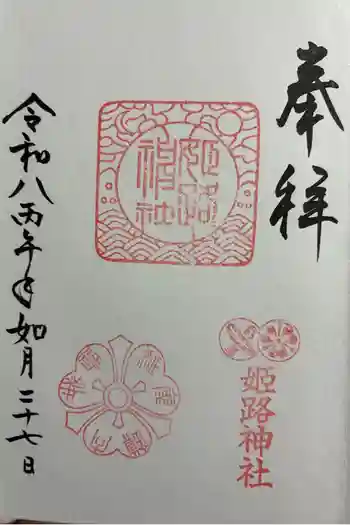 奉拝
姫路
神社
姫路神社
令和八丙午年如月二十七日